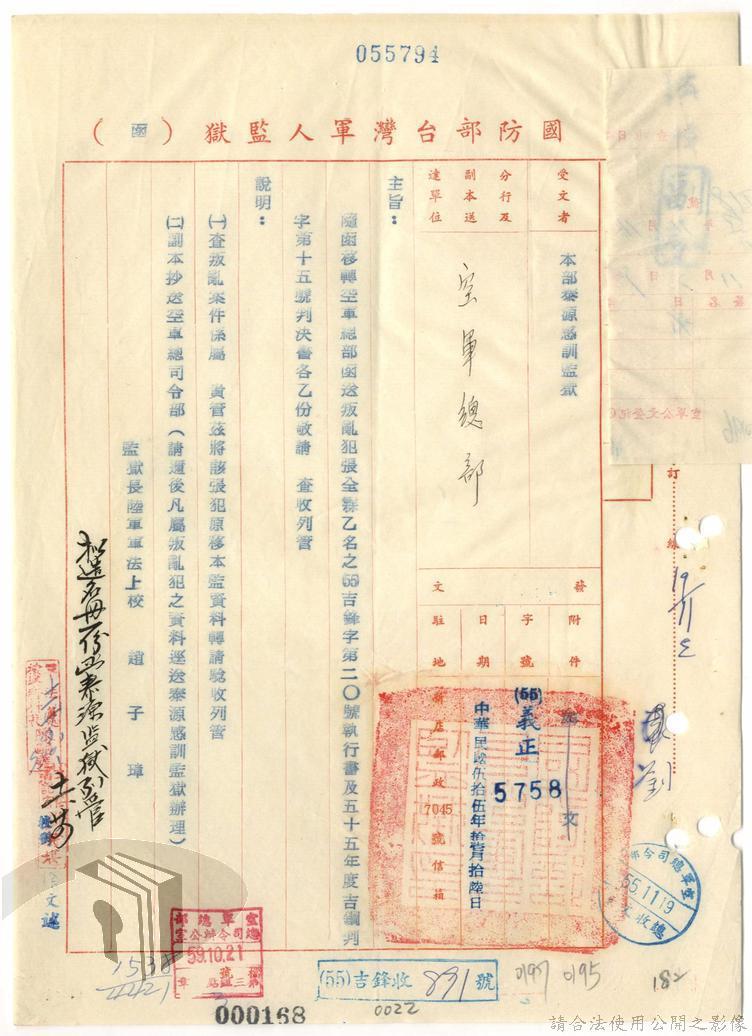 055794
國防部台灣軍人監獄(函)
受文者
本部泰源感訓監獄
分行及
副本送
達單位
空軍總部
發
文
附件
字號
日期
駐地
如文
(55)義正
5758
中華民國伍拾伍年拾壹月拾陸日
新店郵政7045號信箱
主旨：
隨函移轉空軍總部函送叛亂犯張全霖乙名之55吉鋒字第二〇號執行書及五十五年度吉鋼判
字第十五號判決書各乙份敬請 查收列管
說明：
(一)查叛亂案件係屬 貴管茲將該張犯原移本監資料轉請驗收列管
(二)副本抄送空軍總司令部(請邇後凡屬叛亂犯之資料逕送泰源感訓監獄辦理)
監獄長陸軍軍法上校 趙子璋
訂
線
19/11
空軍總司令部
55.11.19
總收文
空軍總部
總司令辦公室
59.10.21
檔號
(55)吉鋒收 891 號
0197 0195
182
1538
000168
0022
請合法使用公開之影像